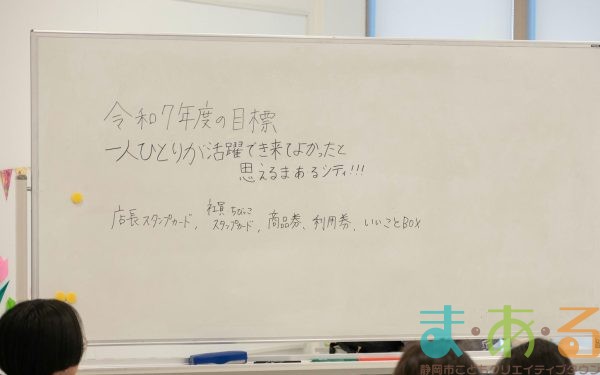 令和7年度の目標
一人ひとりが活躍でき来てよかったと
思えるまあるシティ!!!
店長スタンプカード, 社員ちびっこスタンプカード, 商品券、利用券、いいことBOX
ま・あ・る
静岡市こどもクリエイティブタウン